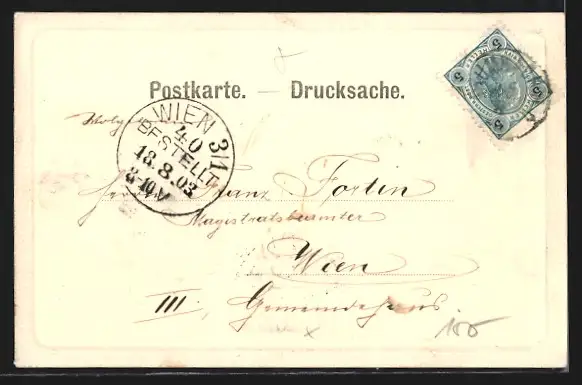 Postkarte. — Drucksache.
WIEN 3/1
40
BESTELLT
18.8.03
8-10V
Franz Fortin
Magistratsbeamter
Wien
III. Gemeindehaus.
100
5 5 5 5